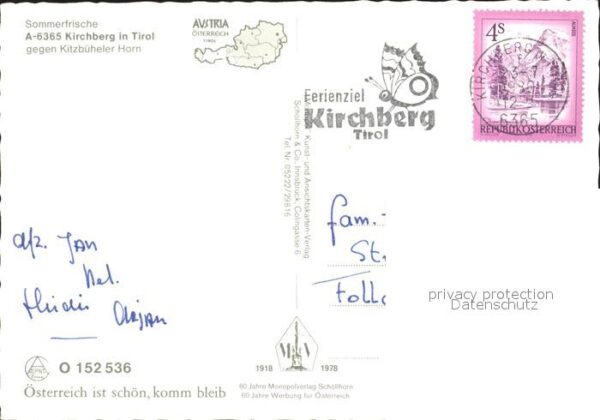 Sommerfrische
A-6365 Kirchberg in Tirol
gegen Kitzbüheler Horn
AUSTRIA
ÖSTERREICH
TIROL
Ferienziel
Kirchberg
Tirol
4S
REPUBLIK ÖSTERREICH
KIRCHBERG IN
6365
Kunst- und Ansichtskarten-Verlag
Schöllhorn & Co., Innsbruck, Colingasse 6
Tel. Nr. 05222/29816
fam.
St.
afz. Jan
Arjan
privacy protection
Datenschutz
1918 1978
60 Jahre Monopolverlag Schöllhorn
60 Jahre Werbung für Österreich
O 152 536
Österreich ist schön, komm bleib